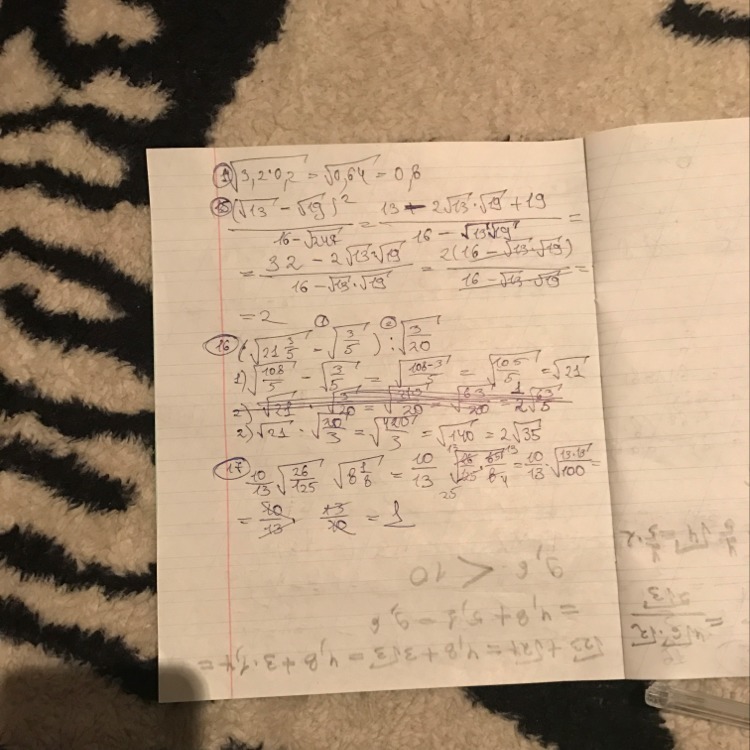 1) √3,2·0,2 = √0,64 = 0,8
15 (√13 − √19)² / 16 − √247 = 13 − 2√13·√19 + 19 / 16 − √13·√19 =
= 32 − 2√13·√19 / 16 − √13·√19 = 2(16 − √13·√19) / 16 − √13·√19 =
= 2
16 (√21 3/5 − √3/5) : √3/20
1) √108/5 − √3/5 = √108−3/5 = √105/5 = √21
2) √21 · √3/20 = √ /20 = √63/20 = 1/2 √63/5
2) √21 · √20/3 = √420/3 = √140 = 2√35
17 10/13 √26/125 √8 1/8 = 10/13 √26/125 · 65/8 = 10/13 · √13·13/100 =
= 10/13 · 13/10 = 1
9,6 < 10
= 4,8 + 5,1 = 9,6
√23 + √27 = 4,8 + 3√3 = 4,8 + 3·1,7 =